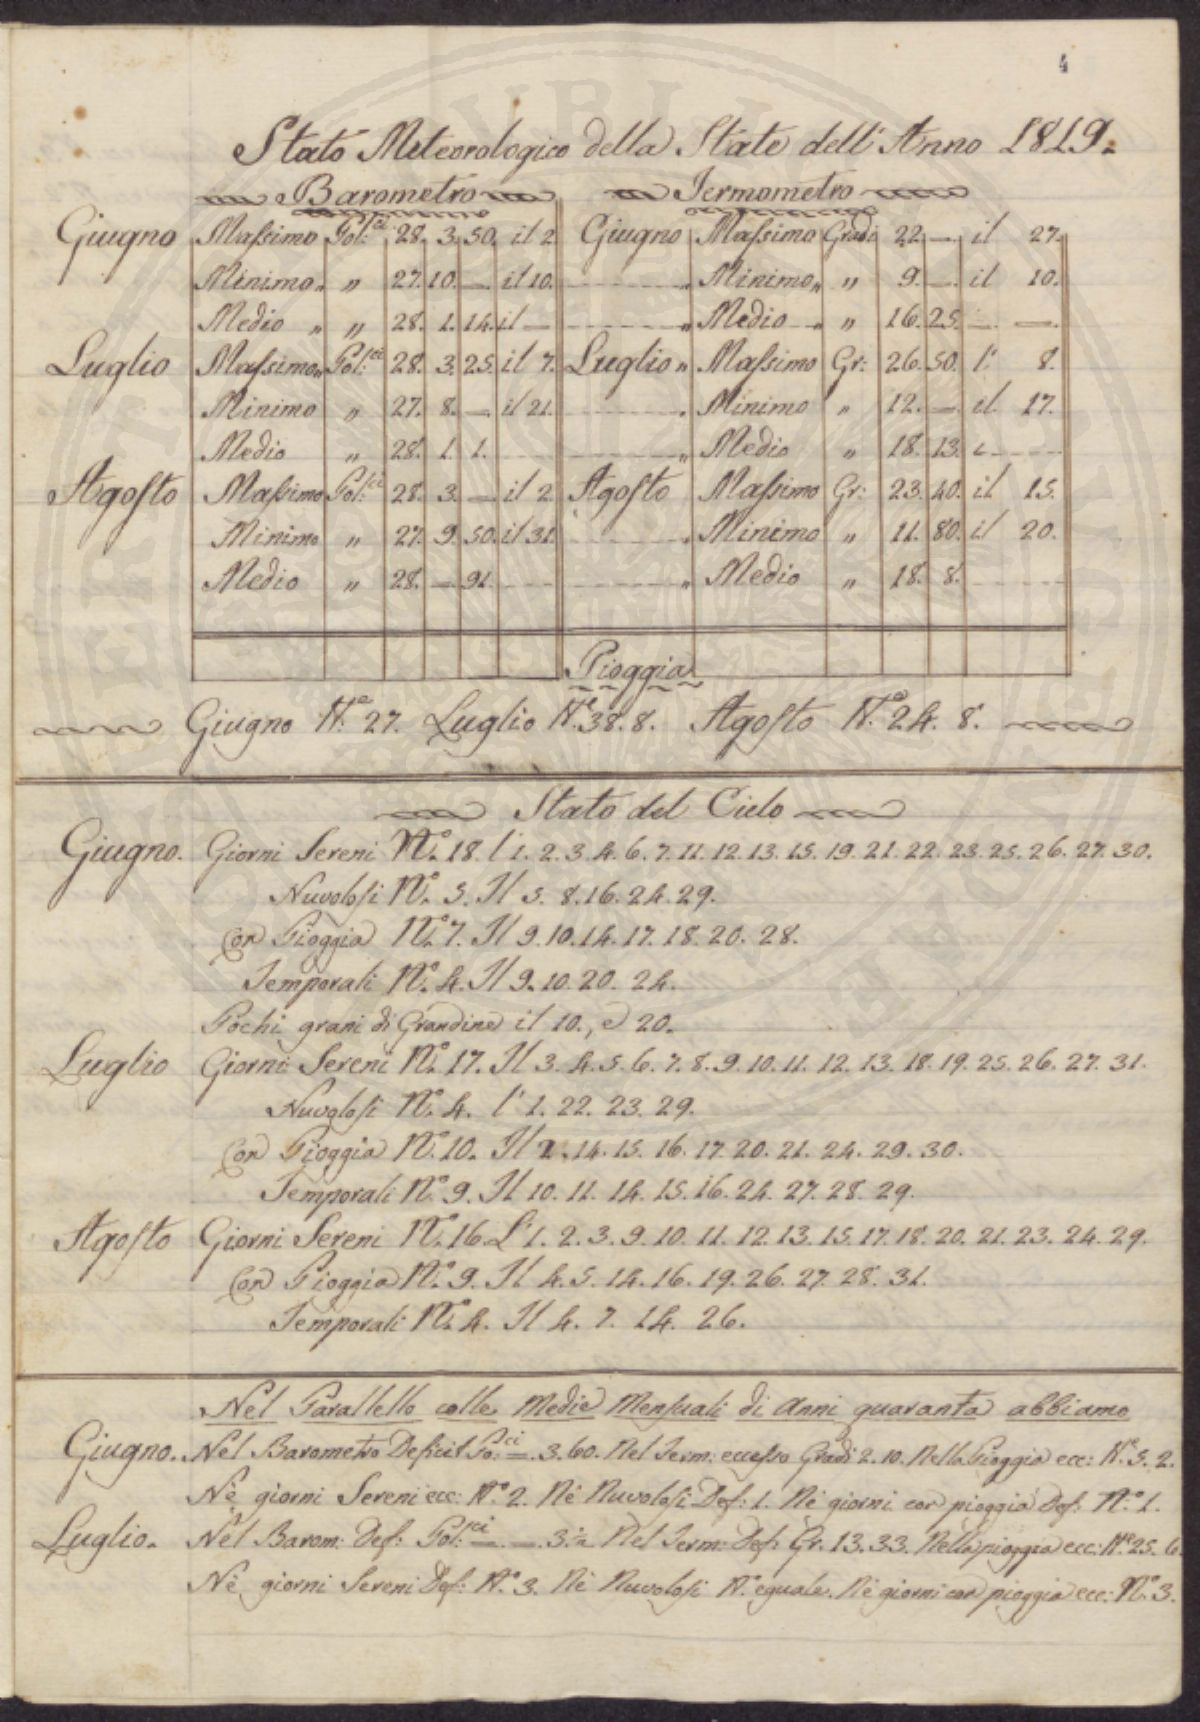 4
Stato Meteorologico della State dell'Anno 1819.
Barometro Termometro
Giugno Massimo Pol:ci 28. 3. 50. il 2 Giugno Massimo Gradi 22 — il 27.
Minimo „ „ 27. 10. — il 10. „ Minimo „ „ 9. — il 10.
Medio „ „ 28. 1. 14. il — „ Medio „ „ 16. 25. — —.
Luglio Massimo „ Pol:ci 28. 3. 25. il 7. Luglio „ Massimo Gr: 26. 50. l' 8.
Minimo „ 27. 8. — il 21. Minimo „ 12. — il 17.
Medio „ 28. 1. 1. „ Medio „ 18. 13.
Agosto Massimo Pol:ci 28. 3. — il 2 Agosto Massimo Gr: 23. 40. il 15.
Minimo „ 27. 9. 50. il 31. „ Minimo „ 11. 80. il 20.
Medio „ 28. — 91. „ Medio „ 18. 8.
Pioggia
Giugno N.e 27. Luglio N.e 38. 8. Agosto N.e 24. 8.
Stato del Cielo
Giugno. Giorni Sereni N.o 18. l' 1. 2. 3. 4. 6. 7. 11. 12. 13. 15. 19. 21. 22. 23. 25. 26. 27. 30.
Nuvolosi N.o 5. Il 5. 8. 16. 24. 29.
Con Pioggia N.o 7. Il 9. 10. 14. 17. 18. 20. 28.
Temporali N.o 4. Il 9. 10. 20. 24.
Pochi grani di Grandine il 10., e 20.
Luglio Giorni Sereni N.o 17. Il 3. 4. 5. 6. 7. 8. 9. 10. 11. 12. 13. 18. 19. 25. 26. 27. 31.
Nuvolosi N.o 4. l' 1. 22. 23. 29.
Con Pioggia N.o 10. Il 2. 14. 15. 16. 17. 20. 21. 24. 29. 30.
Temporali N.o 9. Il 10. 11. 14. 15. 16. 24. 27. 28. 29.
Agosto Giorni Sereni N.o 16. L' 1. 2. 3. 9. 10. 11. 12. 13. 15. 17. 18. 20. 21. 23. 24. 29.
Con Pioggia N.o 9. Il 4. 5. 14. 16. 19. 26. 27. 28. 31.
Temporali N.o 4. Il 4. 7. 14. 26.
Nel Parallello colle Medie Mensuali di Anni quaranta abbiamo
Giugno. Nel Barometro Deficit Po:ci — 3. 60. Nel Term: eccesso Gradi 2. 10. Nella Pioggia ecc: N.e 5. 2.
Nè giorni Sereni ecc: N.o 2. Nè Nuvolosi Def: 1. Nè giorni con pioggia Def: N.o 1.
Luglio. Nel Barom: Def: Pol:ci — — 3 Nel Term: Def: Gr. 13. 33. Nella pioggia ecc: N.e 25. 6.
Nè giorni Sereni Def: N.o 3. Nè Nuvolosi N.o eguale. Nè giorni con pioggia ecc: N.o 3.